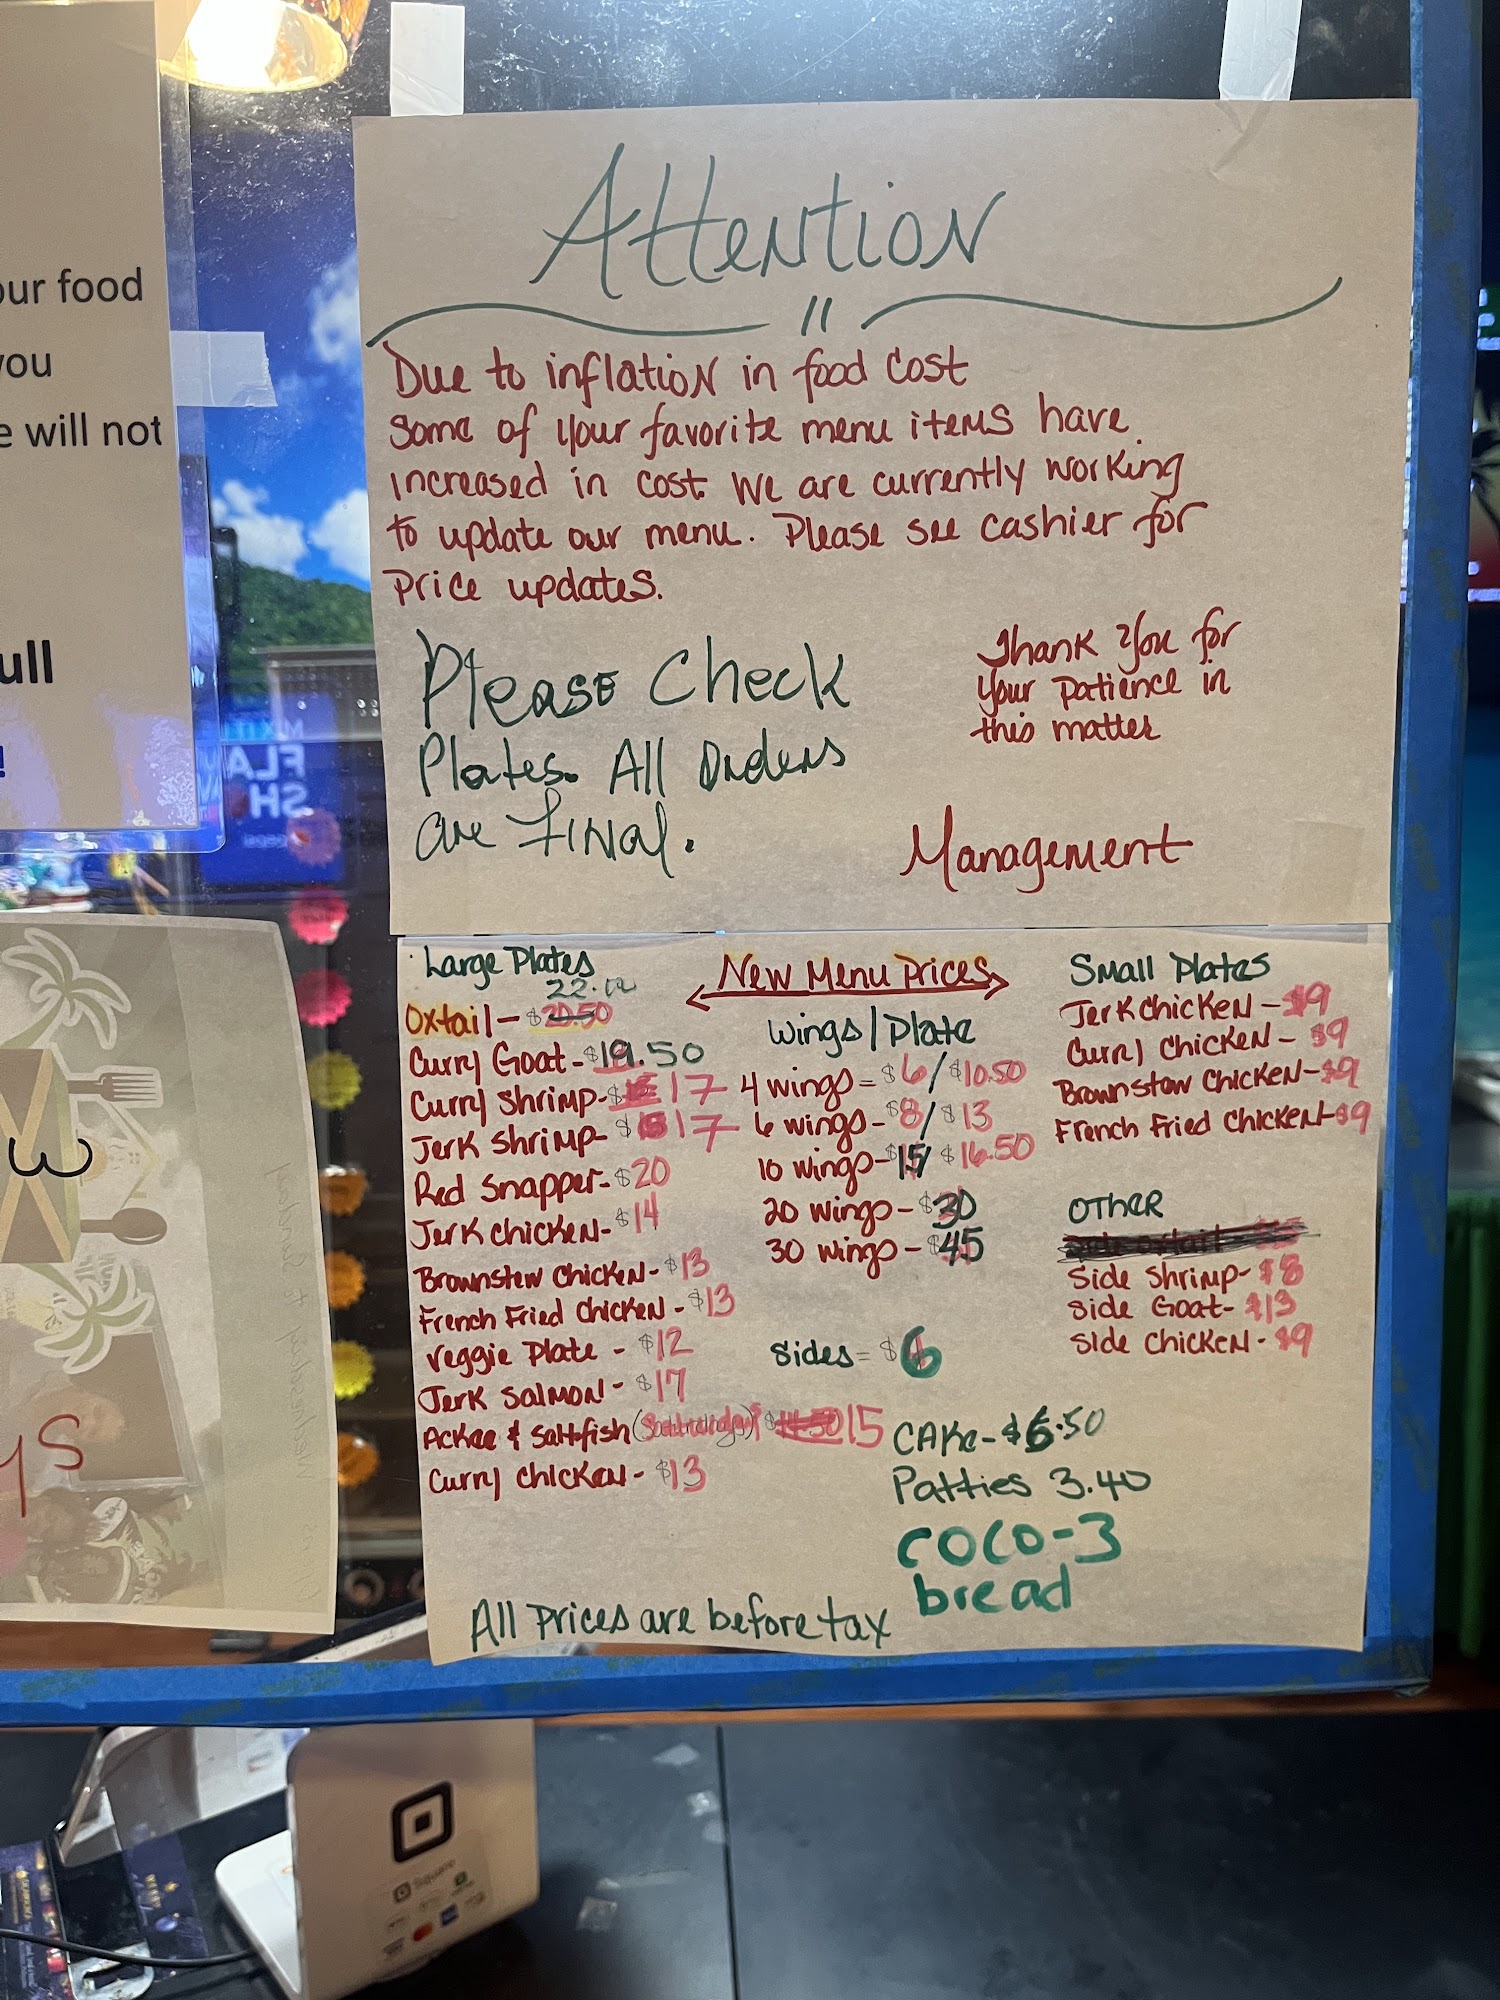 our food
you
e will not
ull
!
ys
Attention
Due to inflation in food cost
some of your favorite menu items have
increased in cost. We are currently working
to update our menu. Please see cashier for
price updates.
Please Check
Plates. All Orders
are Final.
Thank you for
your patience in
this matter
Management
Large Plates
22.00
Oxtail - $20.50
Curry Goat - $19.50
Curry Shrimp - $ 17
Jerk Shrimp - $ 17
Red Snapper - $20
Jerk chicken - $14
Brownstew Chicken - $13
French Fried Chicken - $13
Veggie Plate - $12
Jerk Salmon - $17
Ackee & Saltfish (Saturdays) $14.50 15
Curry Chicken - $13
New Menu Prices
Wings/Plate
4 wings = $6/$10.50
6 wings - $8/$13
10 wings - $15/$16.50
20 wings - $30
30 wings - $45
Sides = $6
Small Plates
Jerk Chicken - $9
Curry Chicken - $9
Brownstew Chicken - $9
French Fried Chicken - $9
Other
Side Shrimp - $8
Side Goat - $13
Side Chicken - $9
Cake - $6.50
Patties 3.40
coco - 3
bread
All prices are before tax
FLA
SH
Square